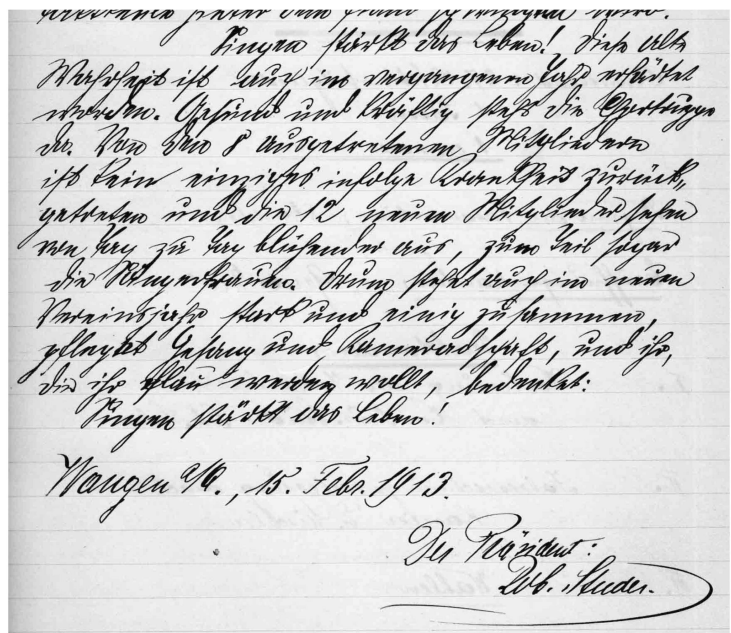 Singen stärkt das Leben! Diese alte
Wahrheit ist auch im vergangenen Jahr erhärtet
worden. Gesund und kräftig steht die
da. Von den 8 ausgetretenen Mitgliedern
ist kein einziges infolge Krankheit zurück-
getreten und die 12 neuen Mitglieder sehen
von Tag zu Tag blühender aus, zum Teil sogar
die Sängerfrauen. Drum stehet auch im neuen
Vereinsjahr stark und einig zusammen,
pfleget Gesang und Kameradschaft, und ihr,
die ihr flau werden wollt, bedenket:
Singen stärkt das Leben!
Wangen a/A., 15. Febr. 1913.
Der Präsident:
Rob. Studer.